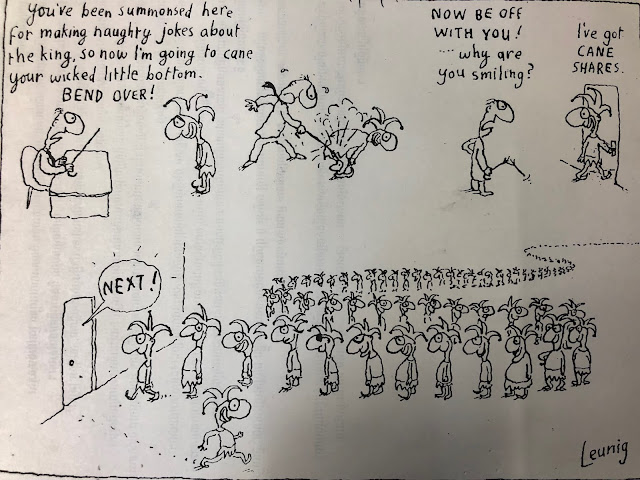 You've been summonsed here
for making naughty jokes about
the king, so now I'm going to cane
your wicked little bottom.
BEND OVER!
NOW BE OFF
WITH YOU!
....why are
you smiling?
I've got
CANE
SHARES.
NEXT!
Leunig